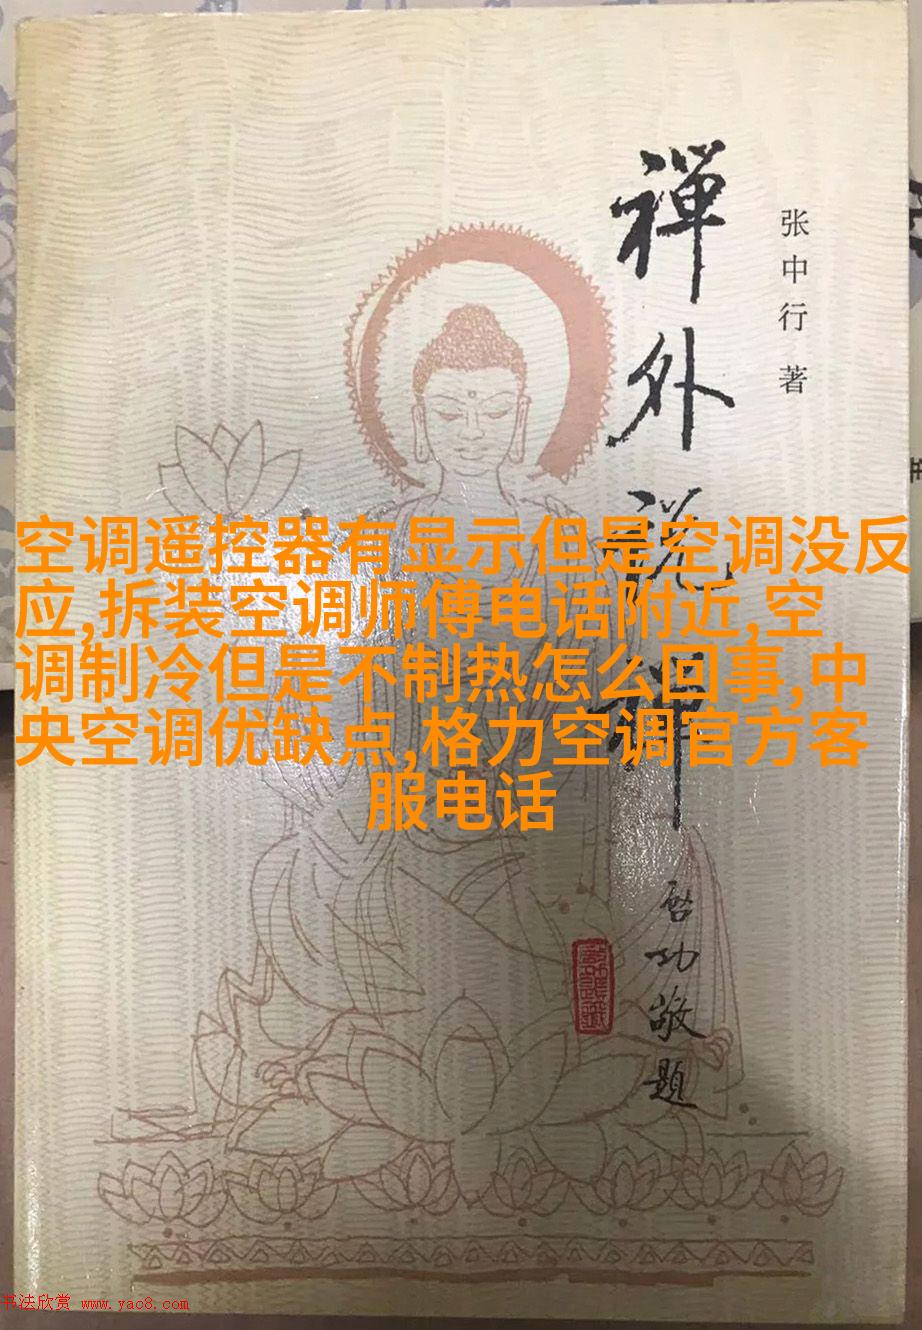 禅外说禅
张中行 著
空调遥控器有显示但是空调没反
应,拆装空调师傅电话附近,空
调制冷但是不制热怎么回事,中
央空调优缺点,格力空调官方客
服电话
启功敬题
书法欣赏 www.yac8.com